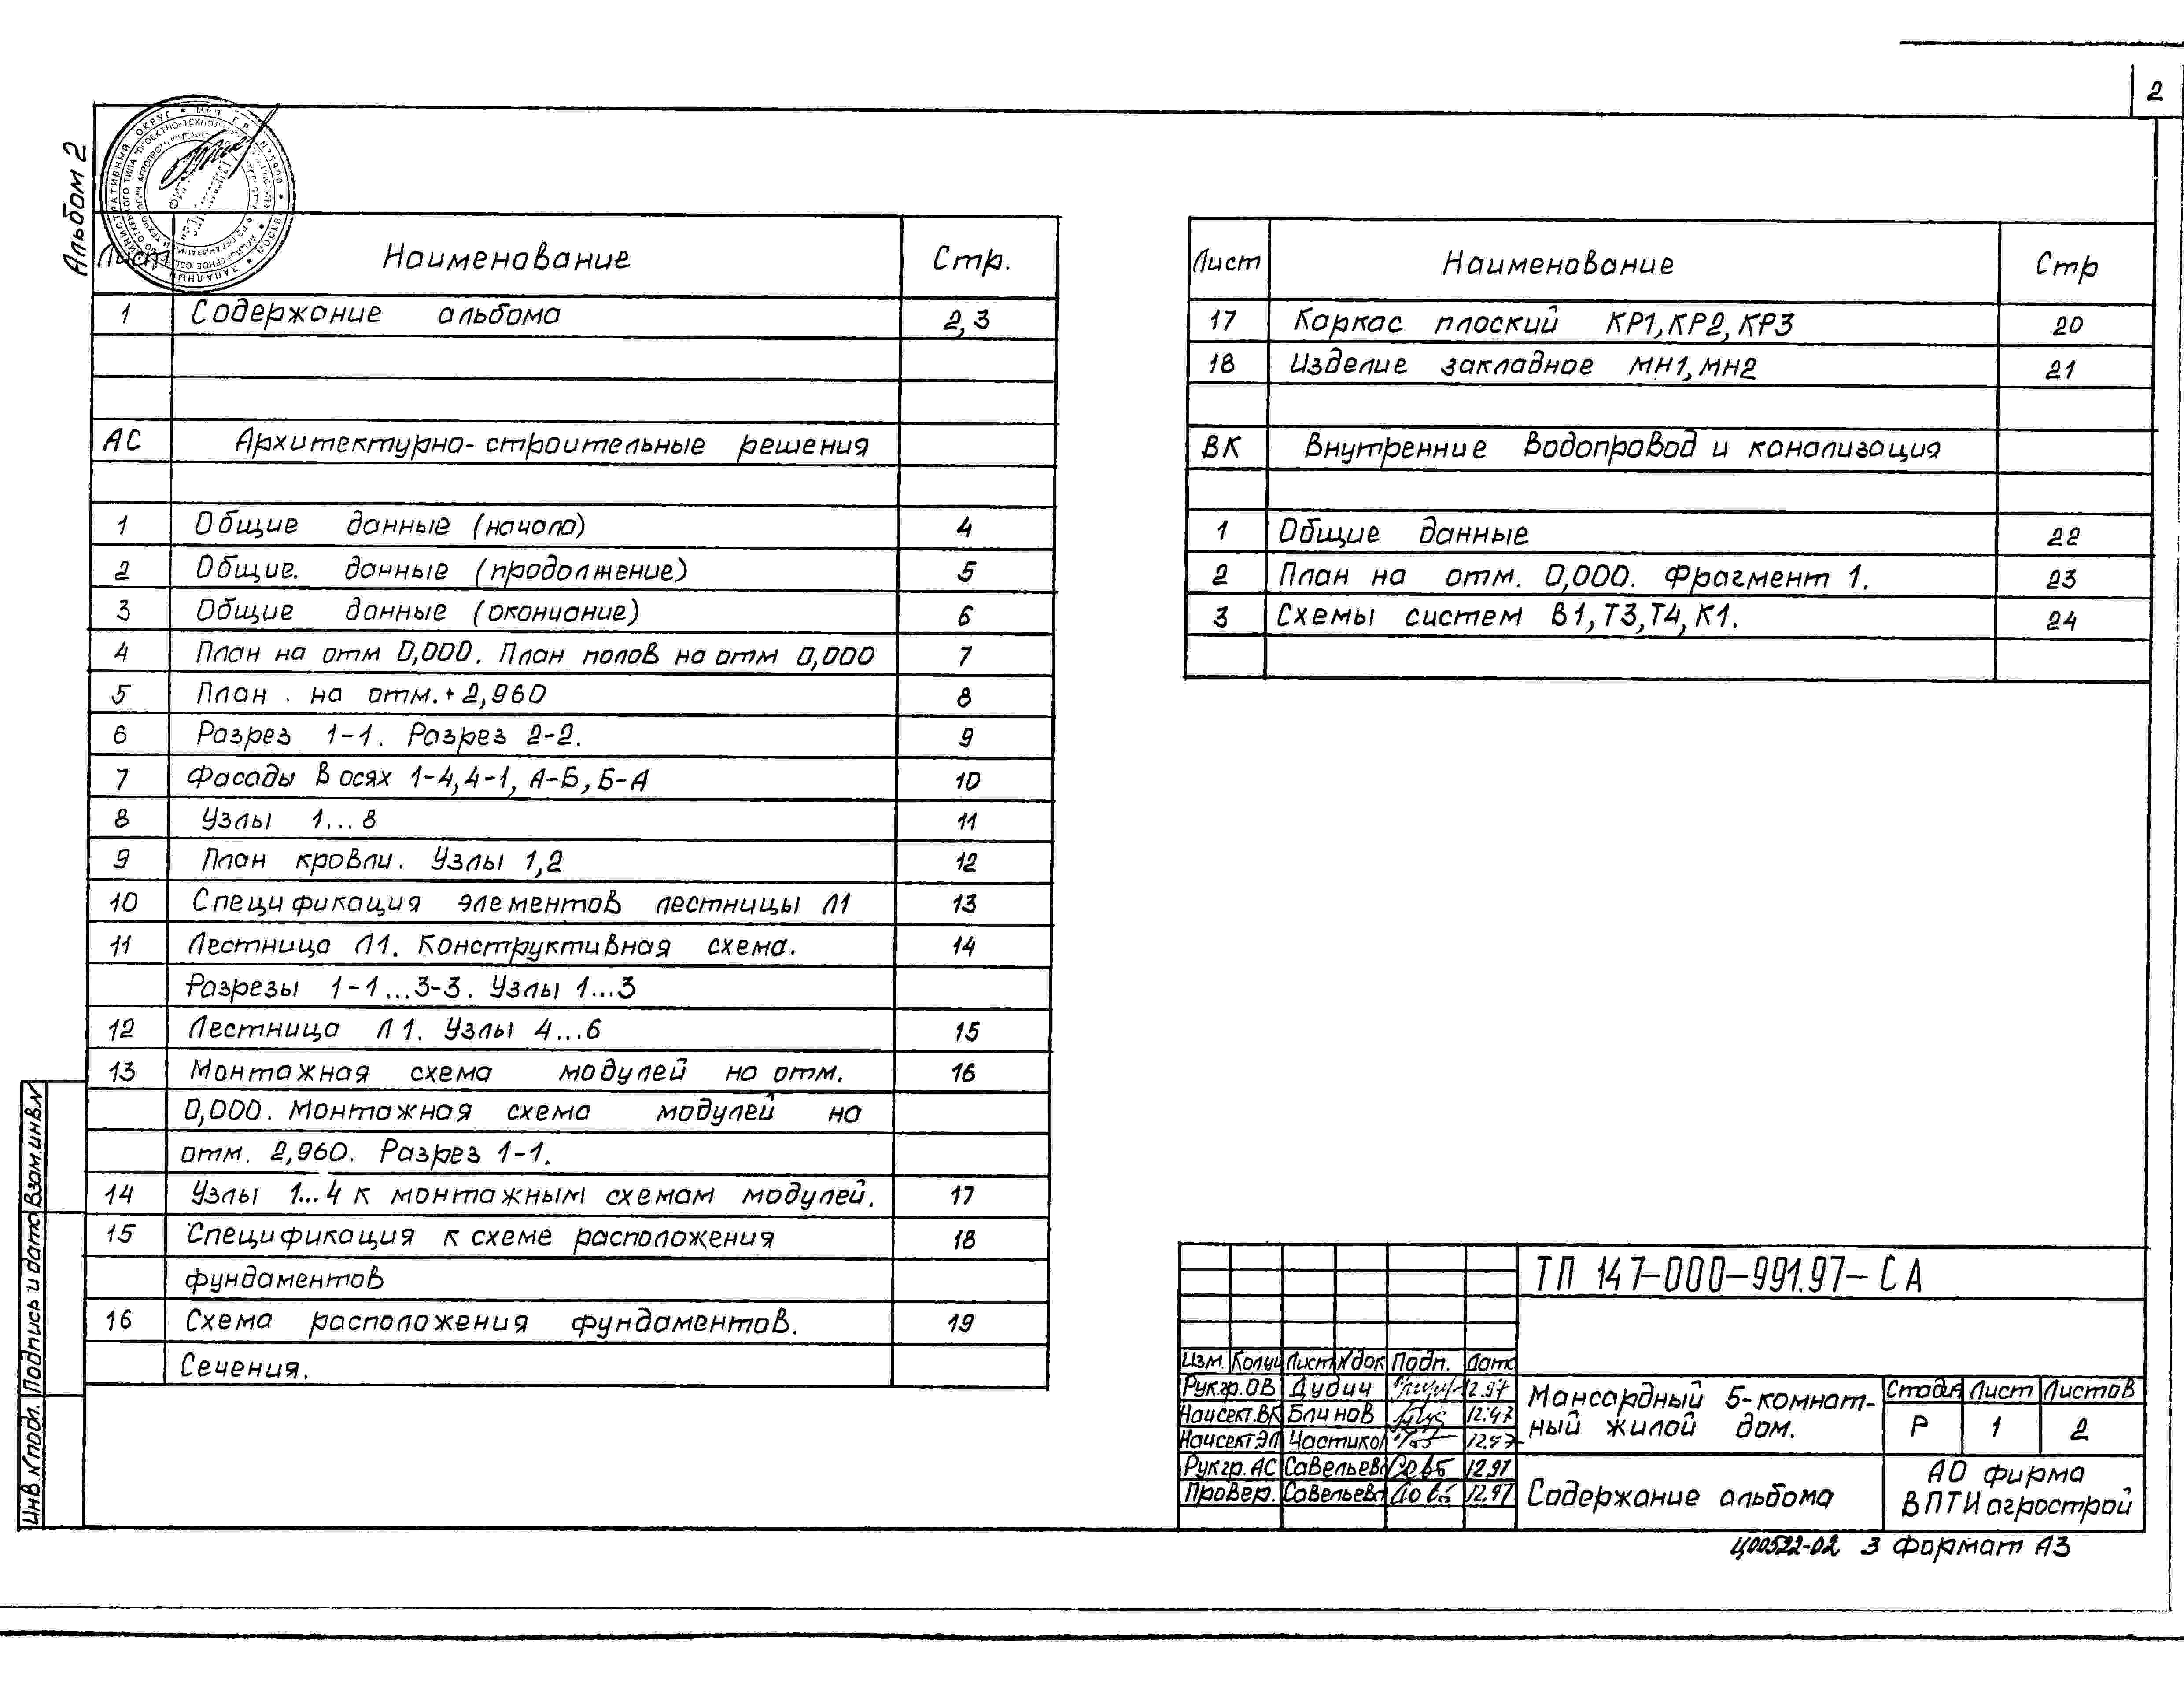 2
Альбом 2
Лист Наименование Стр.
1 Содержание альбома 2,3
АС Архитектурно-строительные решения
1 Общие данные (начало) 4
2 Общие. данные (продолжение) 5
3 Общие данные (окончание) 6
4 План на отм 0,000. План полов на отм 0,000 7
5 План . на отм.+2,960 8
6 Разрез 1-1. Разрез 2-2. 9
7 Фасады в осях 1-4,4-1, А-Б, Б-А 10
8 Узлы 1...8 11
9 План кровли. Узлы 1,2 12
10 Спецификация элементов лестницы Л1 13
11 Лестница Л1. Конструктивная схема. 14
Разрезы 1-1...3-3. Узлы 1...3
12 Лестница Л1. Узлы 4...6 15
13 Монтажная схема модулей на отм. 16
0,000. Монтажная схема модулей на
отм. 2,960. Разрез 1-1.
14 Узлы 1...4 к монтажным схемам модулей. 17
15 Спецификация к схеме расположения 18
фундаментов
16 Схема расположения фундаментов. 19
Сечения.
Лист Наименование Стр
17 Каркас плоский КР1,КР2,КР3 20
18 Изделие закладное МН1,МН2 21
ВК Внутренние водопровод и канализация
1 Общие данные 22
2 План на отм. 0,000. Фрагмент 1. 23
3 Схемы систем В1,Т3,Т4,К1. 24
Взам.инв.N
Подпись и дата
Инв.N подл.
ТП 147-000-991.97-СА
Изм. Кол.уч Лист Nдок Подп. Дата
Рук.гр.ОВ Дудич 12.97
Нач.сект.ВК Блинов 12.97
Нач.сект.ЭЛ Частиков 12.97
Рук.гр.АС Савельева 12.97
Провер. Савельева 12.97
Мансардный 5-комнат-
ный жилой дом.
Стадия Лист Листов
Р 1 2
Содержание альбома
АО фирма
ВПТИагрострой
Ц00522-02 3 Формат А3